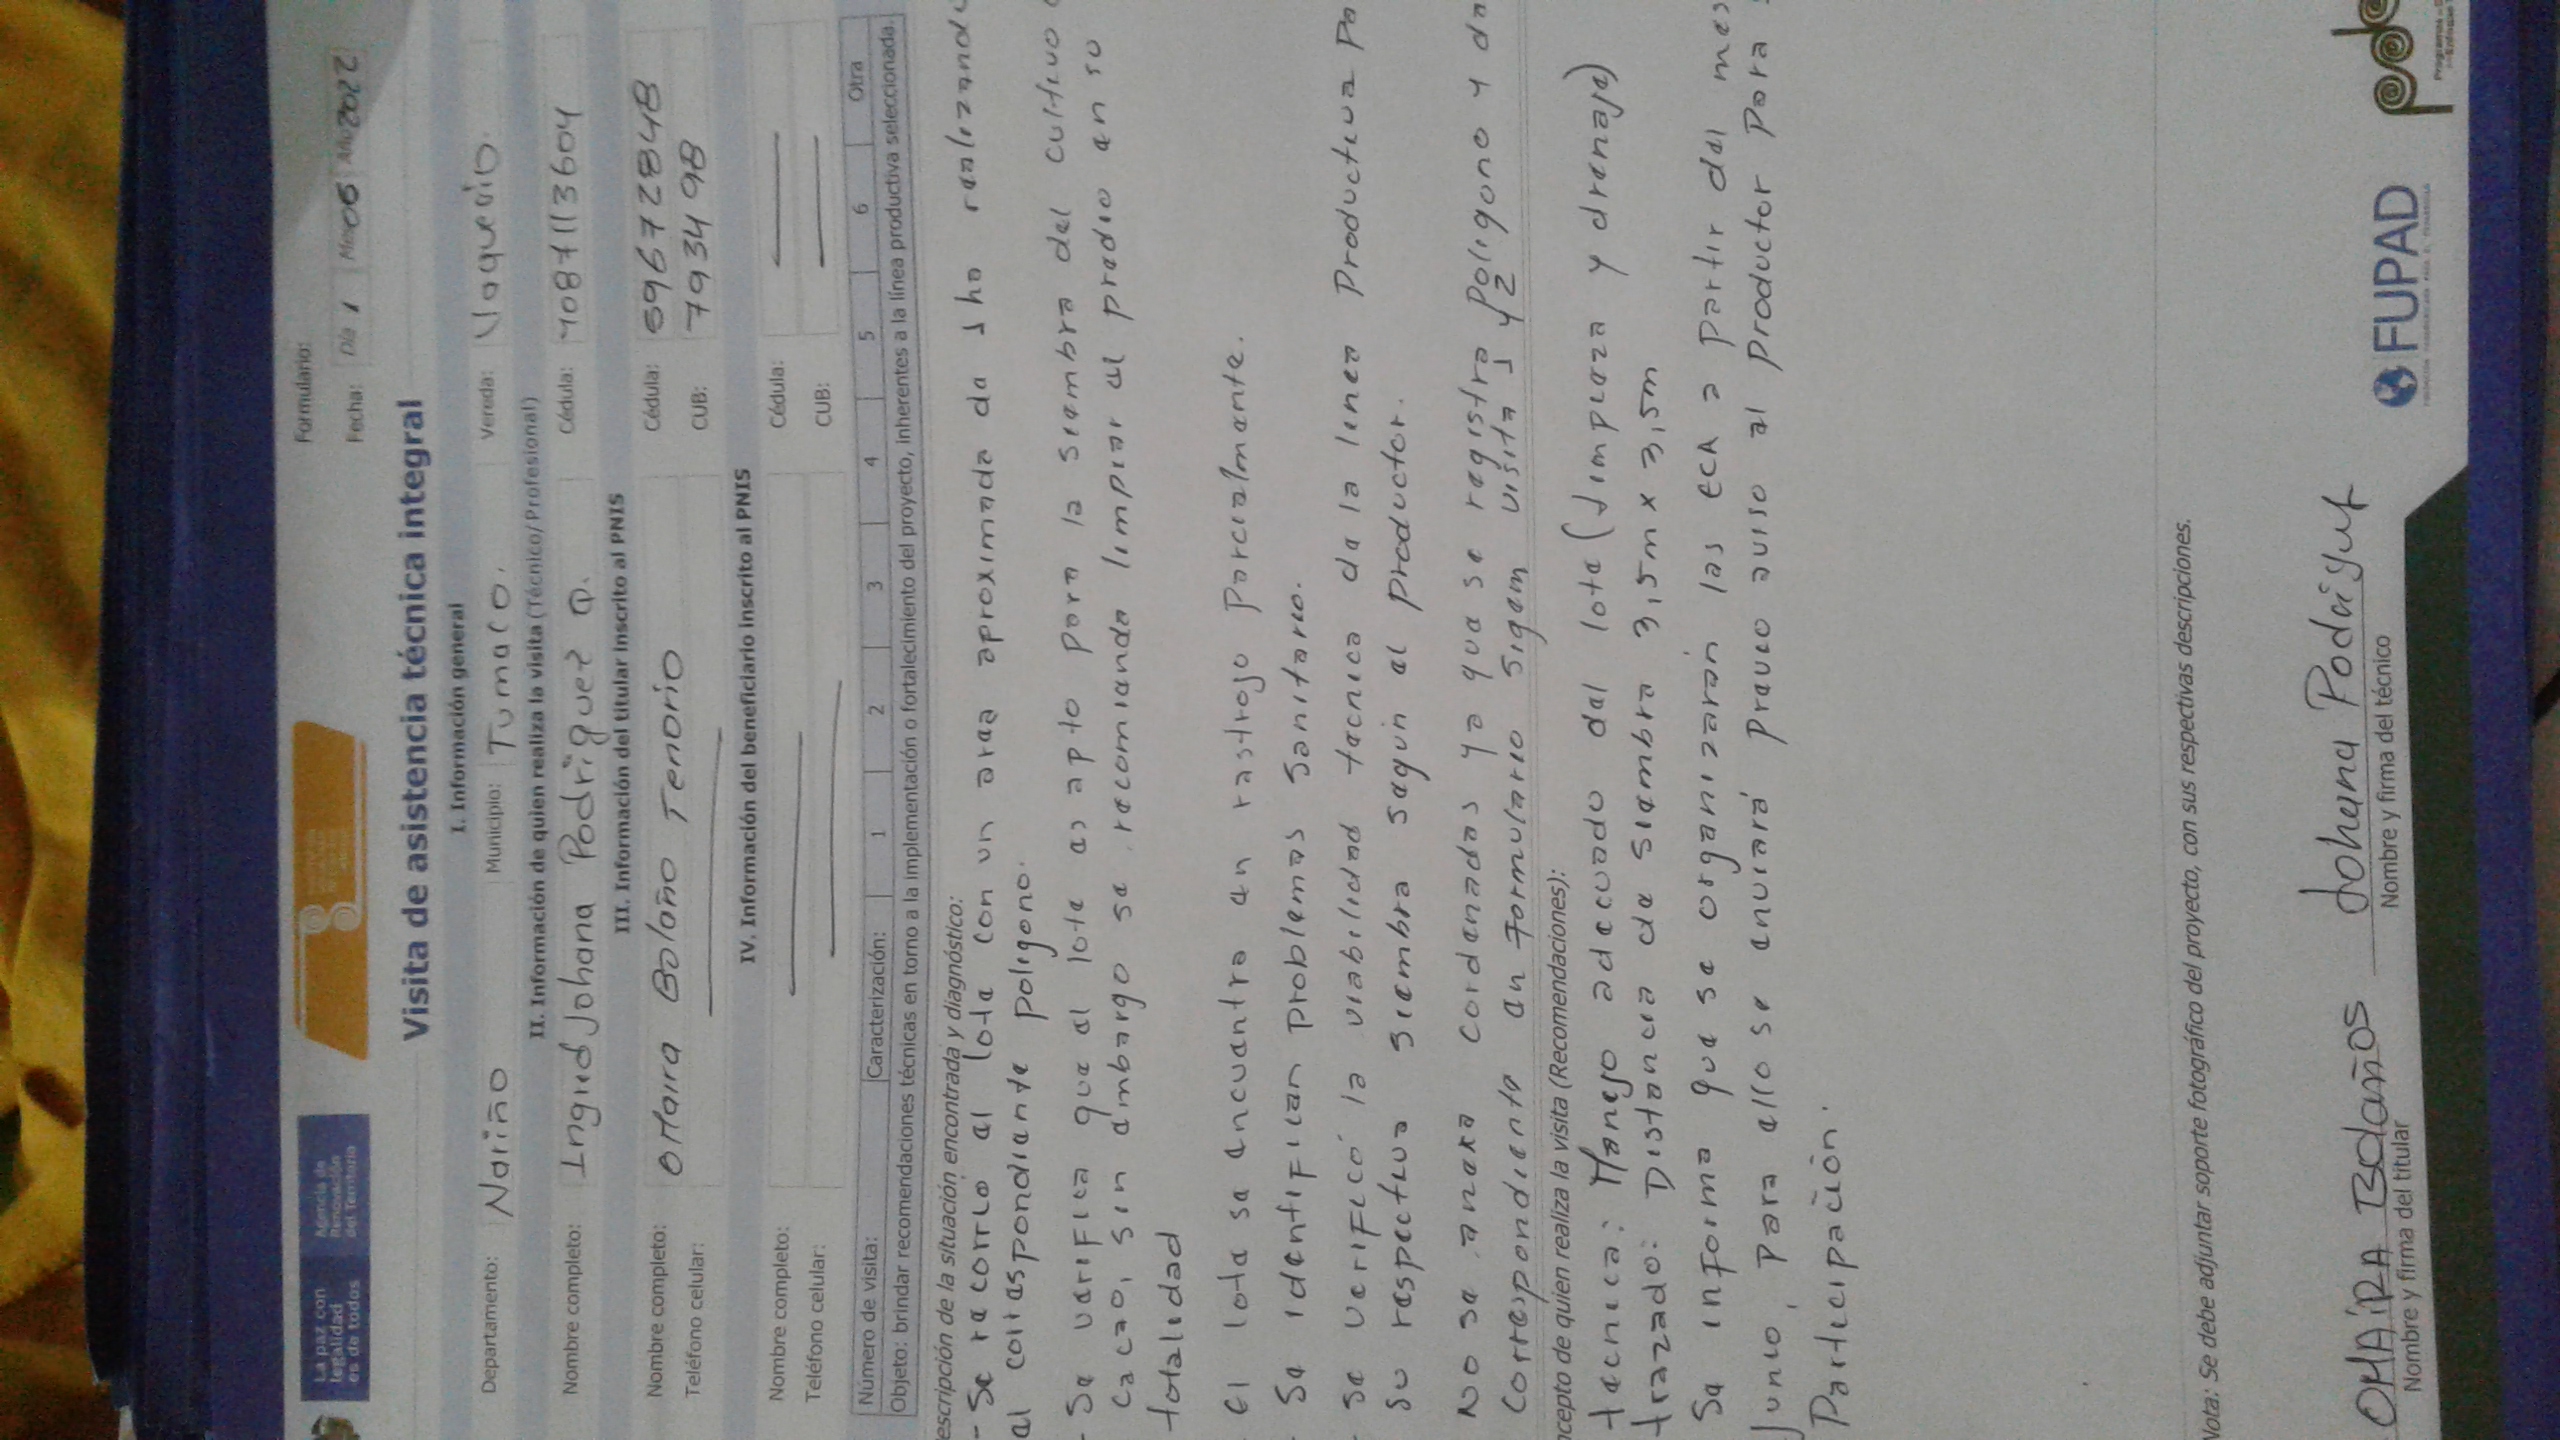 La paz con
legalidad
es de todos
Agencia de
Renovación
del Territorio
Formulario:
Fecha: Día 1 Mes 06 Año 2022
Visita de asistencia técnica integral
I. Información general
Departamento: Nariño Municipio: Tumaco. Vereda: Vaquerio.
II. Información de quien realiza la visita (Técnico/Profesional)
Nombre completo: Ingrid Johana Rodriguez Q. Cédula: 1087113604
III. Información del titular inscrito al PNIS
Nombre completo: Omaira Bolaño Tenorio Cédula: 59672848
Teléfono celular: CUB: 793498
IV. Información del beneficiario inscrito al PNIS
Nombre completo: Cédula:
Teléfono celular: CUB:
Número de visita: Caracterización: 1 2 3 4 5 6 Otra
Objeto: brindar recomendaciones técnicas en torno a la implementación o fortalecimiento del proyecto, inherentes a la línea productiva seleccionada.
escripción de la situación encontrada y diagnóstico:
- Se recorrio el lote con un area aproximada de 1 ha realizando
el correspondiente poligono.
- Se verifica que el lote es apto para la siembra del cultivo
cacao, sin embargo se recomienda limpiar el predio en su
totalidad
- El lote se encuentra en rastrojo parcialmente.
- Se identifican problemas sanitario.
- se verificó la viabilidad tecnica de la linea productiva
su respectiva siembra segun el productor.
No se anexa cordenadas ya que se registra poligono y
correspondiente en formulario sigem visita 1 y 2
ncepto de quien realiza la visita (Recomendaciones):
tecnica: Manejo adecuado del lote (limpieza y drenaje)
trazado: Distancia de siembra 3,5m x 3,5m
Se informa que se organizaran las ECA a partir del mes
Junio, para ello se enviará previo aviso al productor para
Participación.
Nota: Se debe adjuntar soporte fotográfico del proyecto, con sus respectivas descripciones.
OMAiRA BOLAÑOS Johana Rodriguez
Nombre y firma del titular Nombre y firma del técnico
FUPAD